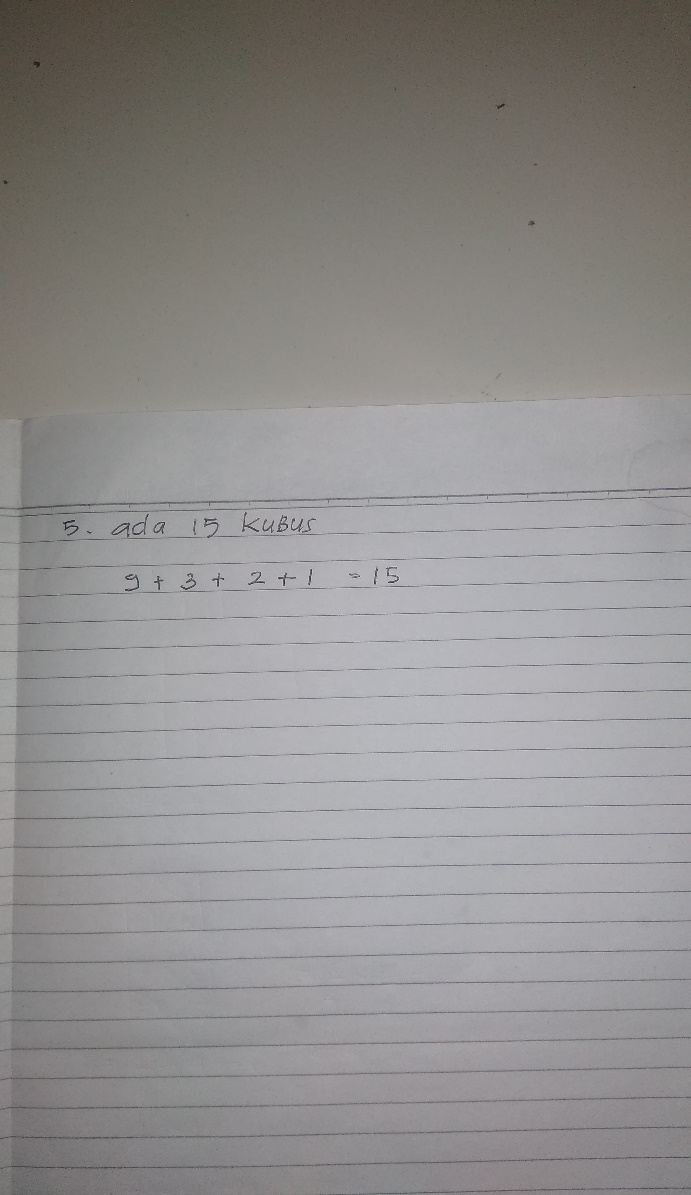 5. ada 15 kuBus
9 + 3 + 2 + 1 = 15